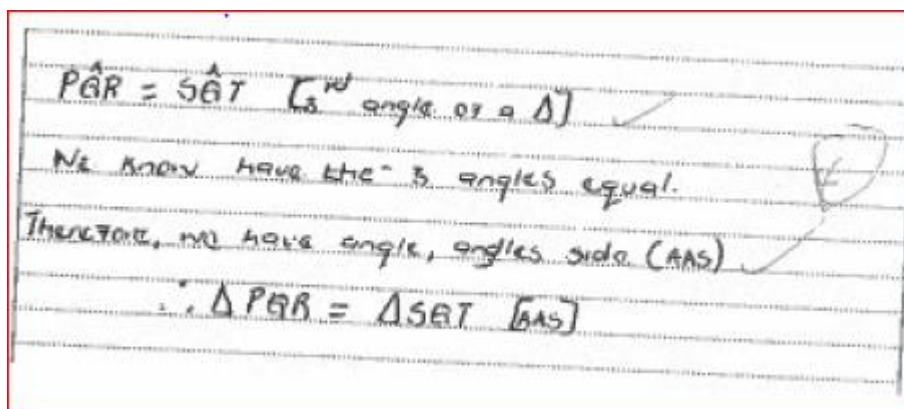 PQ̂R = SQ̂T [3rd angle of a Δ]
We know have the 3 angles equal.
Therefore, we have angle, angles side (AAS)
∴ ΔPQR = ΔSQT [AAS]